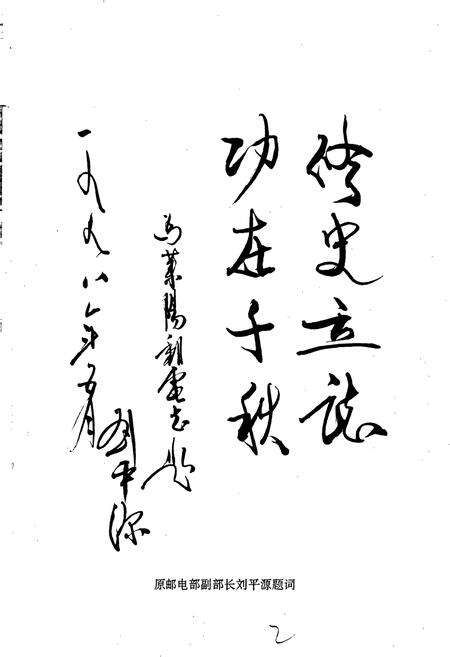 修史立誌
功在千秋
为莱阳邮电志题
刘平源
一九九八年五月
原邮电部副部长刘平源题词
2